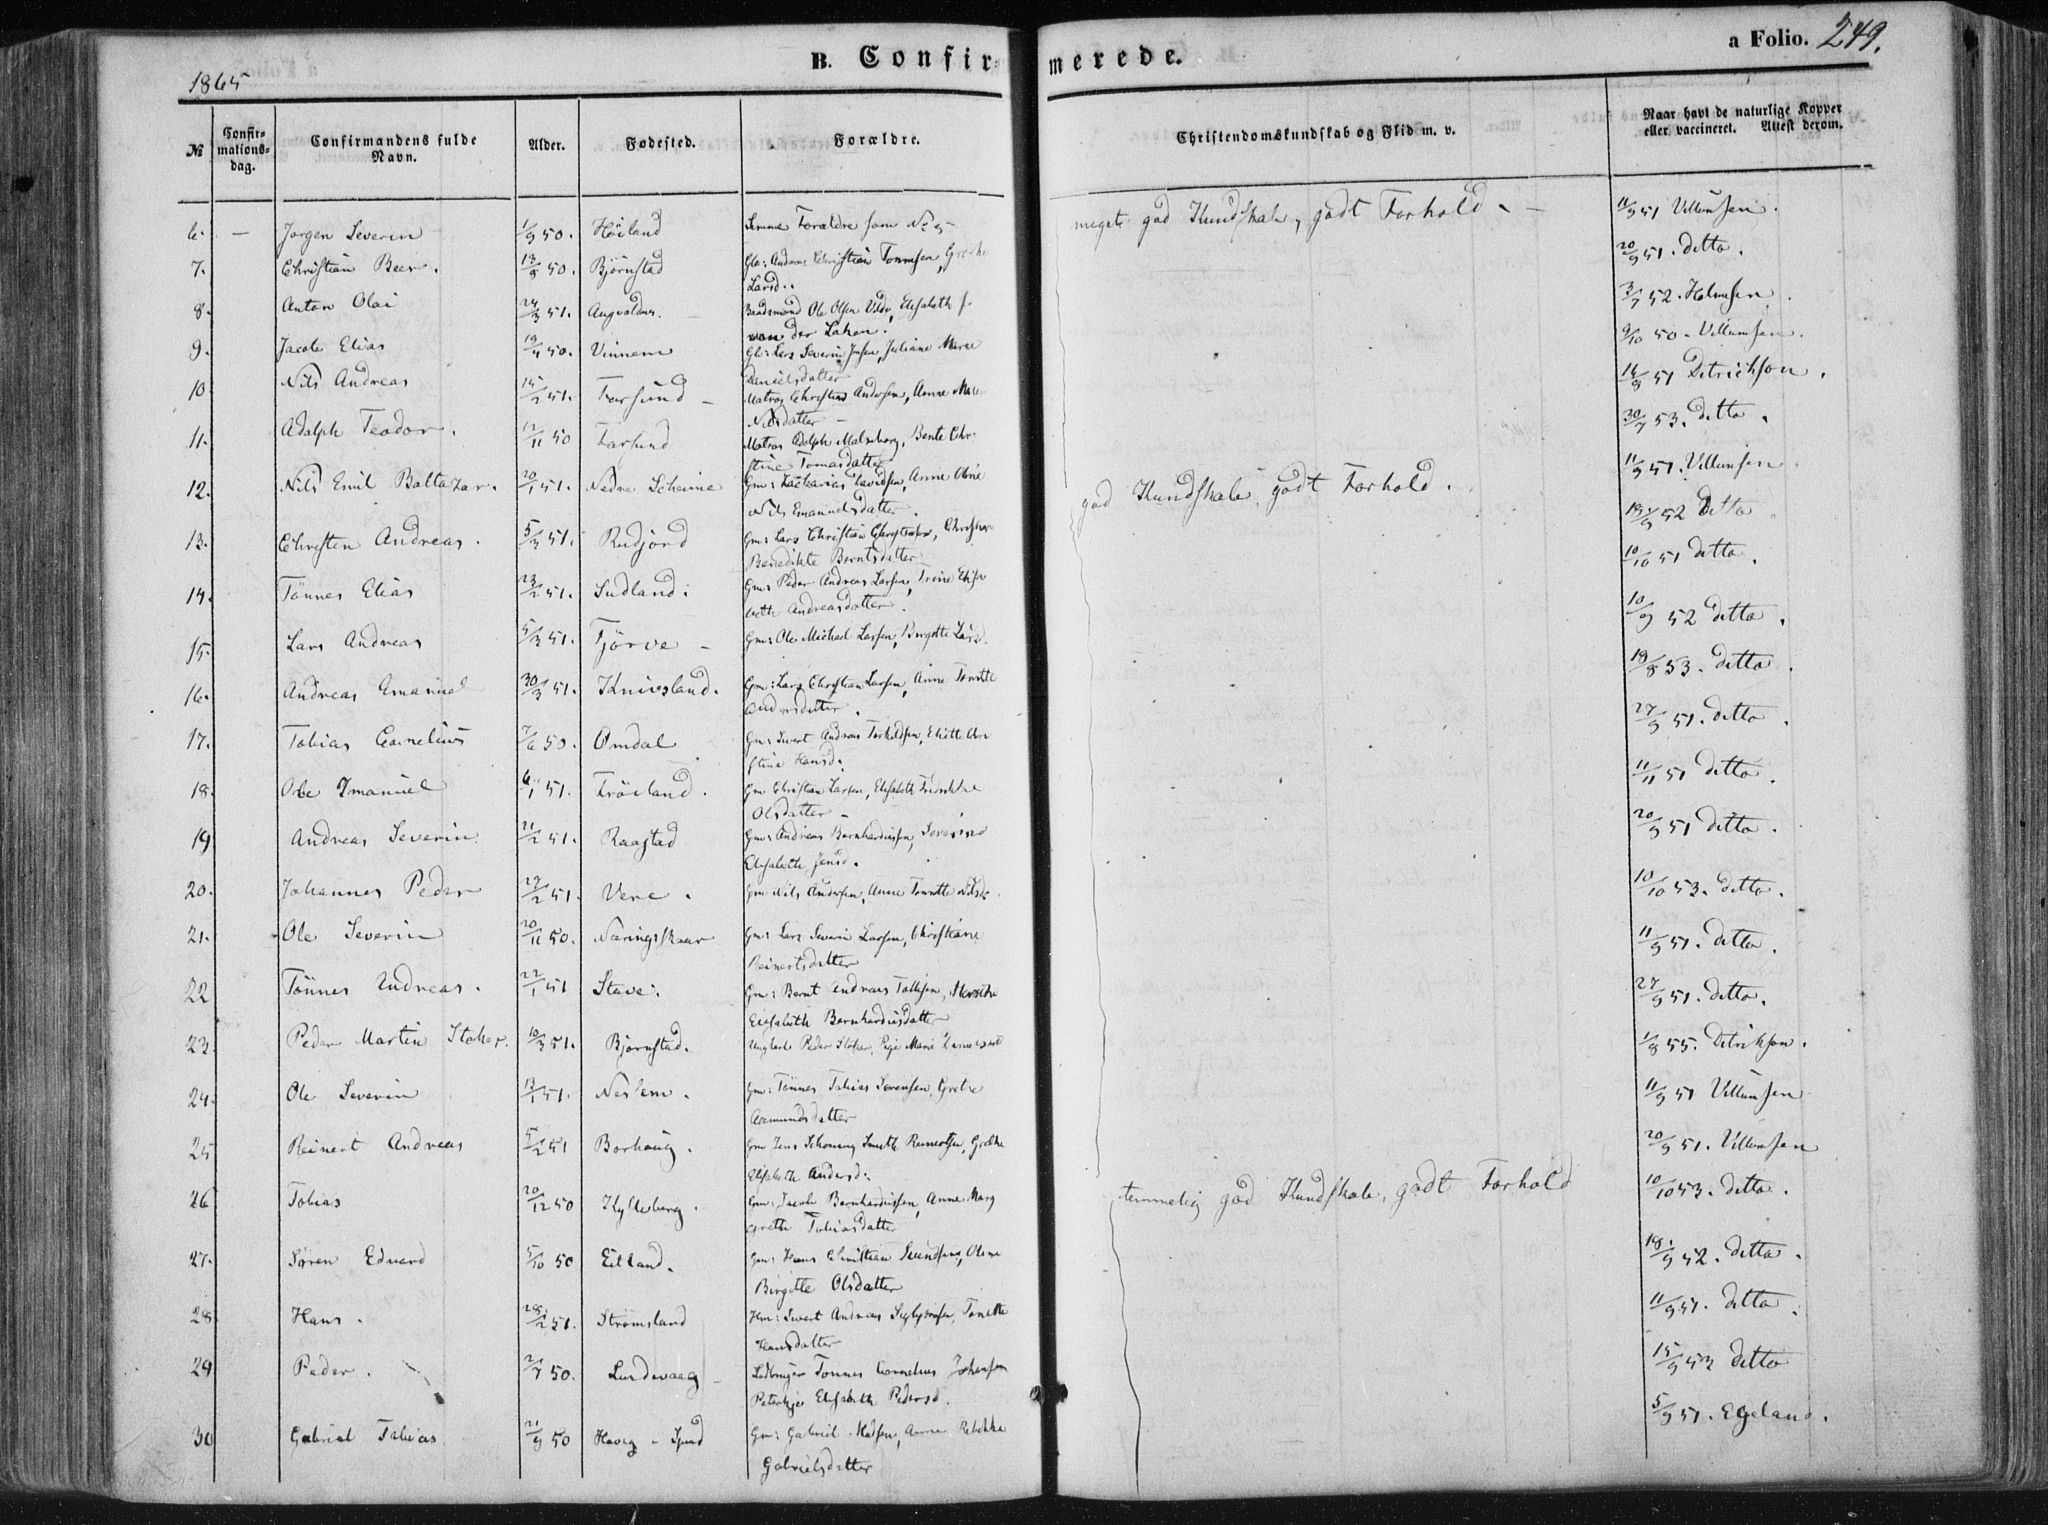 1865
B. Confirmerede.
a Folio. 249.
№
Confirmationsdag.
Confirmandens fulde Navn.
Alder.
Fødested.
Forældre.
Christendomskundskab og Flid m. v.
Naar havt de naturlige Kopper eller vaccineret. Attest derom.
6. — Jørgen Severin 1/9 50. Høiland Samme Forældre som No 5 meget god Kundskab, godt Forhold. — 11/9 51 Villumsen.
7. Christian Beer. 13/8 50. Bjørnstad Christian Tønnesen, Grethe 20/9 51. ditto.
Larsd.
8. Anton Olai 24/3 51. Ole Olsen Elisabeth 3/7 52. Holmsen
von der
9. Jacob Elias 19/4 50. Vinnem Lars Severin Juliane Marie 9/10 50. Villumsen.
Danielsdatter
10. Nils Andreas 15/2 51. Farsund — Matros Christian Andersen, Anne 14/9 51 Ditrichson.
Nilsdatter —
11. Adolph Teodor. 12/11 50 Farsund Matros Adolph Malmberg, Bente Chri- 30/7 53. ditto.
stine Tomasdatter
12. Nils Emil Baltazar. 20/1 51. Nedre Scheime Gm: Zacharias Davidsen, Anne Oline god Kundskab, godt Forhold. 11/9 51. Villumsen.
Nils Emanuelsdatter.
13. Christen Andreas. 5/3 51. Rudjord Gm: Lars Christian 52 ditto
Benedikte Berntsdatter
14. Tønnes Elias 23/2 51. Sudland. Gm: Peder Andreas Larsen, Trine Elisa 10/10 51 ditto.
beth Andreasdatter.
15. Lars Andreas 5/3 51. Tjørve — Gm: Ole Michael Larsen, Birgitte Larsd. 10/9 52 ditto.
16. Andreas Emanuel 30/3 51. Knivsland. Gm: Lars Christian Larsen, Anne 18/8 53. ditto.
Andersdatter.
17. Tobias Cornelius 7/6 50. Omdal Gm: Sivert Andreas Torkildsen, 27/9 51. ditto.
stine Hansd.
18. Ole Emanuel 6/1 51. Frøiland. Gm: Christian Larsen, Elisabeth 11/11 51 ditto.
Olsdatter —
19 Andreas Severin 21/2 51. Raastad Gm: Andreas Bernhardussen, Severine 20/9 51 ditto.
Elisabeth Jensd.
20. Johannes Peder 27/2 51. Vere. Gm: Nils Andersen, Anne Nilsd. 10/10 53. ditto.
21. Ole Severin 20/11 50. Næringskaar Gm: Lars Severin Larsen, Christiane 11/9 51. ditto.
Reinertsdatter
22 Tønnes Andreas. 22/1 51 Stave. Gm: Bernt Andreas 27/9 51. ditto.
Elisabeth Bernhardusdatter
23. Peder Martin Stoker. 10/3 51. Bjørnstad. Ungkarl Peder Stoker, Pige Marie 1/8 55. Ditrikson.
24. Ole Severin 13/1 51. Neslem. Gm: Tønnes Tobias Sørensen, Grethe 11/9 51 Villumsen
Aamundsdatter
25 Reinert Andreas 5/2 51 Borhaug. Gm: Jens Schouning Smith Reinertsen, Grethe 20/9 51. Villumsen
Elisabeth Andersd.
26 Tobias 20/12 50 Kylleberg. Gm: Jacob Bernhardussen, Anne Marg temmelig god Kundskab, godt Forhold 10/10 53. ditto.
grethe Tobiasdatter
27. Søren Edvard 5/10 50 Eitland. Gm: Hans Christian Olene 52. ditto.
Birgitte Olsdatter
28 Hans. 28/2 51. Strømsland Sivert Andreas Tonette 11/9 51. ditto.
Hansdatter
29 Peder. 50. Lundevaag — Tønnes Cornelius Johansen 15/9 53 ditto
Elisabeth Pedersd.
30 Gabriel Tobias 21/9 50 Haveg — Spind Gm: Gabriel Anne Rebekka 5/9 51. Egeland.
Gabrielsdatter